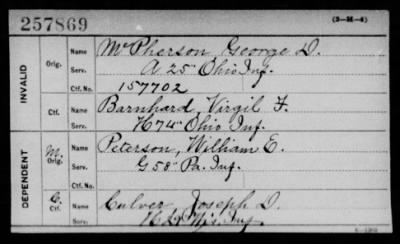 257869 (3-M-4)
INVALID
Orig. Name McPherson George D.
Serv. A 25" Ohio Inf.
Ctf. No. 157702
Ctf. Name Barnhard, Virgil F.
Serv. H 74" Ohio Inf.
DEPENDENT
M. Orig. Name Peterson, William E.
Serv. G 58" Pa. Inf.
C. Ctf. Name Culver, Joseph D.
Serv. Inf.